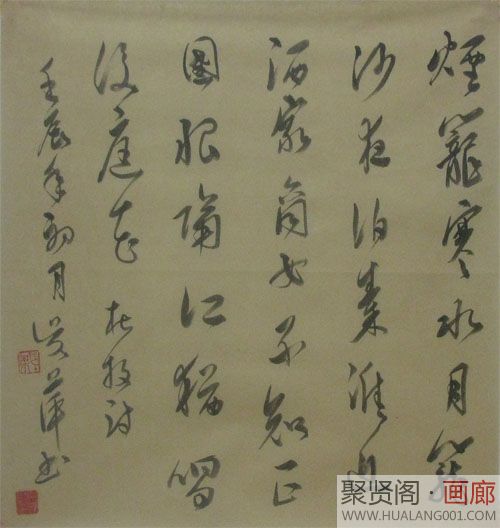 煙籠寒水月籠
沙夜泊秦淮
酒家商女不知亡
國恨隔江猶唱
後庭花 杜牧詩
壬辰年 月 萍书
聚贤阁·画廊
WWW.HUALANG001.COM